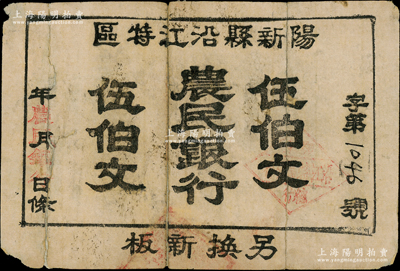 上海陽明拍賣
陽新縣沿江特區
字第1046號
伍伯文
農民銀行
伍伯文
年 月 日條
另換新板
上海陽明拍賣
www.ymauction.com